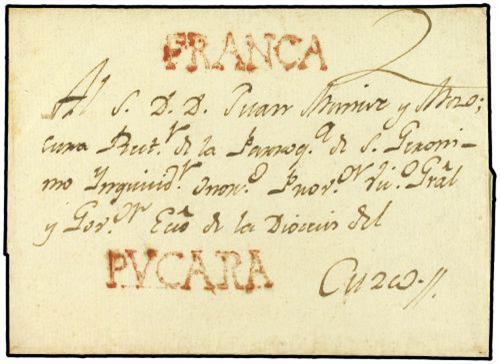 FRANCA
2
Al S. D. D. Juan Munive y Mozo;
cura Rect.r de la Parroq.a de S. Geroni-
mo Ynquisid.r Prov.or Vic.o Gral
y Gov.or de la Diocesis del
PVCARA
Cuzco.